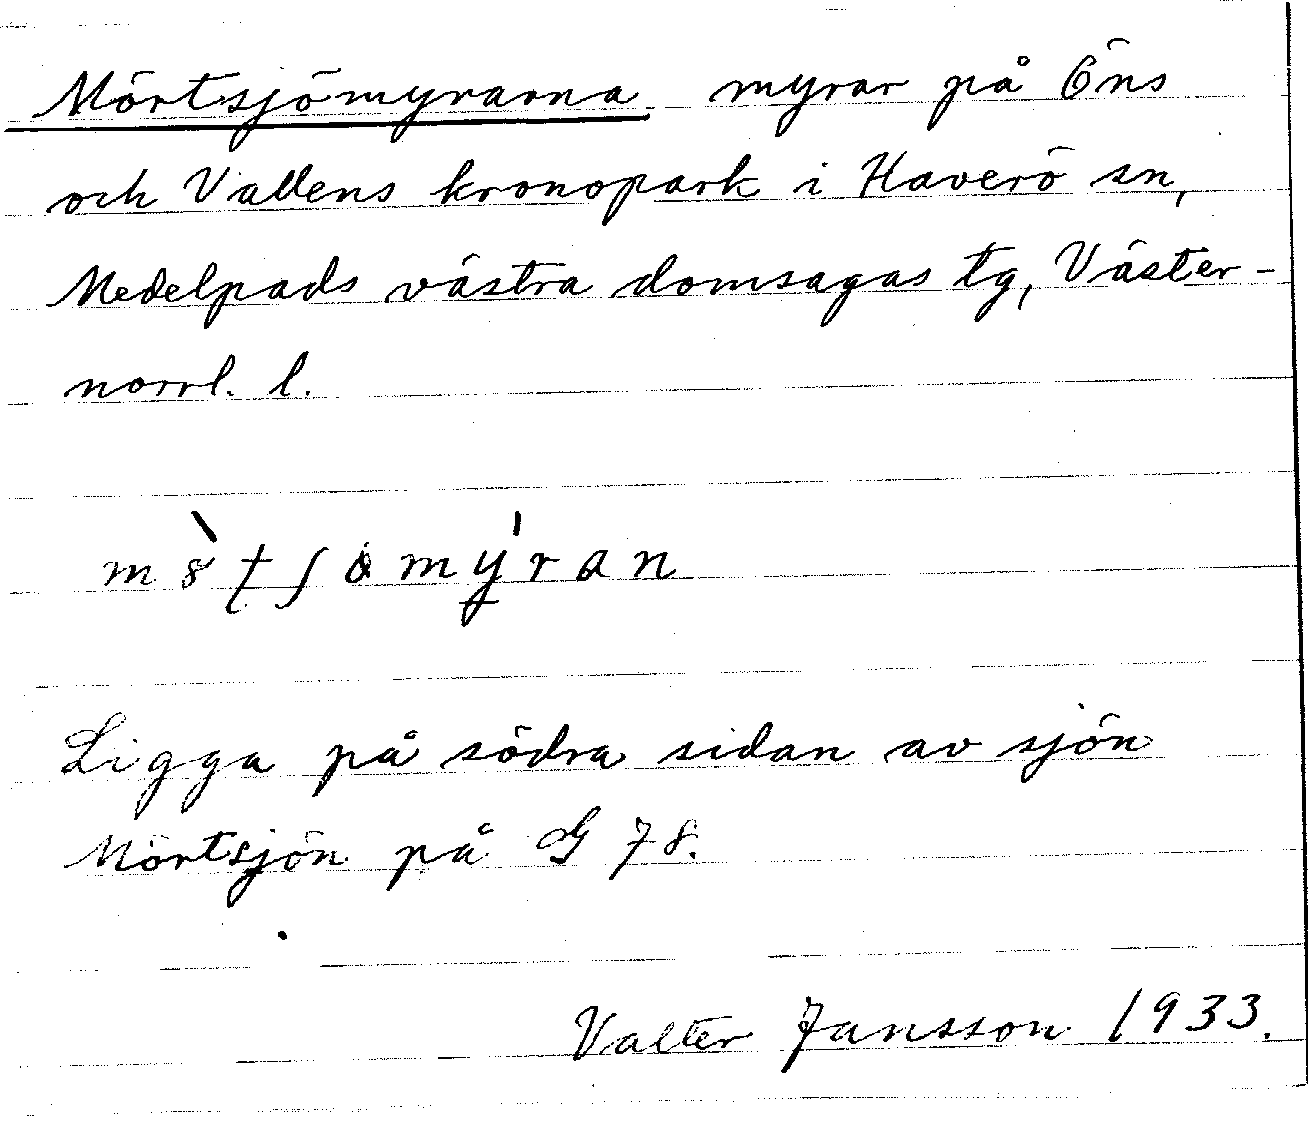 Mörtsjömyrarna myrar på Öns
och Vallens kronopark i Haverö sn,
Medelpads västra domsagas tg, Väster-
norrl. l.
Ligga på södra sidan av sjön
Mörtsjön på G 78.
Valter Jansson 1933.